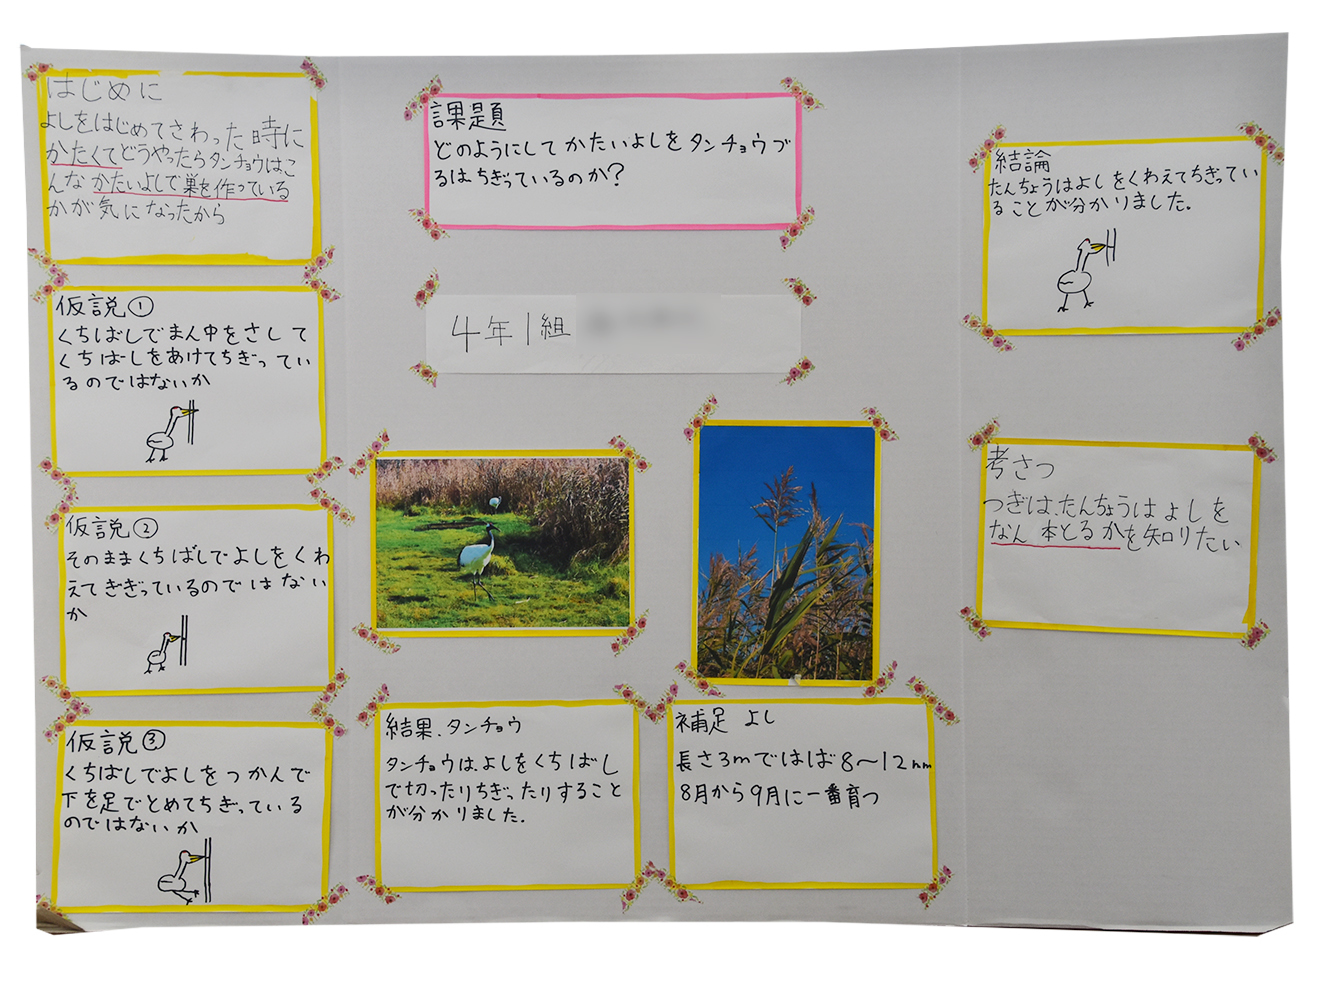 はじめに
よしをはじめてさわった時に
かたくてどうやったらタンチョウはこ
んなかたいよしで巣を作っている
かが気になったから
仮説①
くちばしでまん中をさして
くちばしをあけてちぎってい
るのではないか
仮説②
そのままくちばしでよしをくわ
えてきぎっているのではない
か
仮説③
くちばしでよしをつかんで
下を足でとめてちぎっている
のではないか
課題
どのようにしてかたいよしをタンチョウづ
るはちぎっているのか?
4年1組
結果.タンチョウ
タンチョウは、よしをくちばし
で切ったりちぎったりすること
が分かりました.
補足 よし
長さ3mではば8~12mm
8月から9月に一番育つ
結論
たんちょうはよしをくわえてちぎってい
ることが分かりました.
考さつ
つぎは、たんちょうはよしを
なん本とるかを知りたい